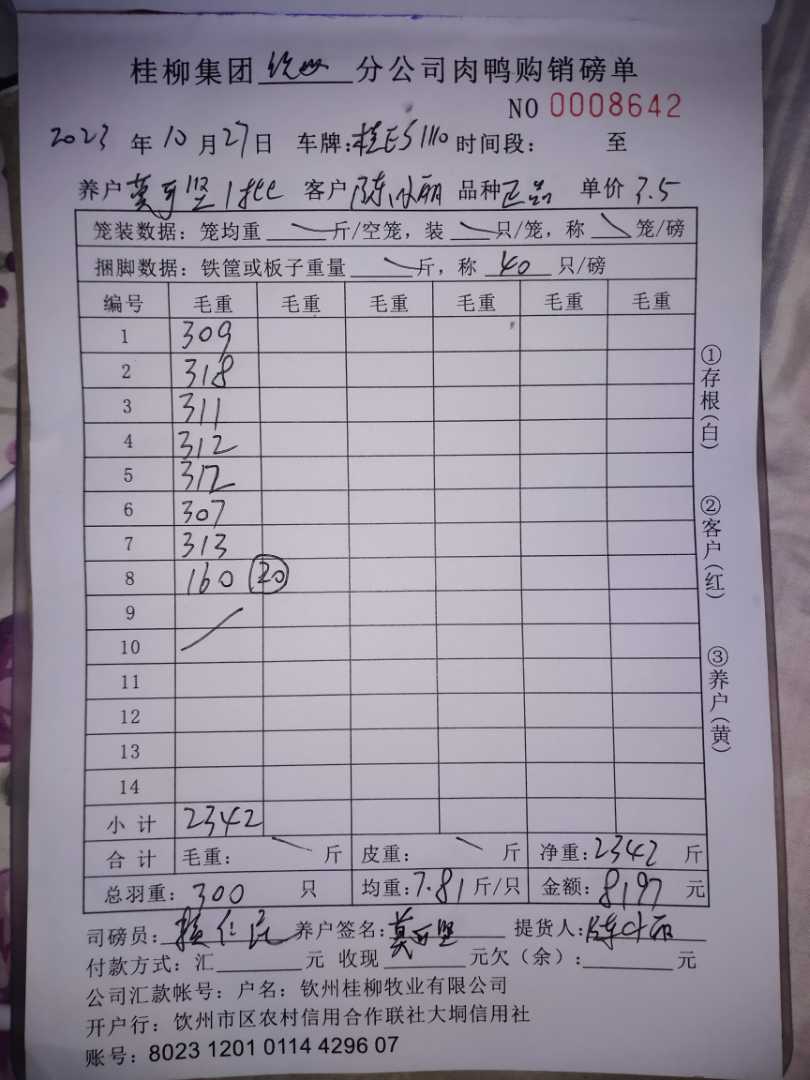 桂柳集团钦州分公司肉鸭购销磅单
NO 0008642
2023年10月27日 车牌:桂E51110 时间段: 至
养户 莫可坚 1批 客户 陈小丽 品种 正品 单价 3.5
笼装数据: 笼均重 斤/空笼, 装 只/笼, 称 笼/磅
捆脚数据: 铁筐或板子重量 斤, 称 40 只/磅
编号 毛重 毛重 毛重 毛重 毛重 毛重
1 309
2 318
3 311
4 312
5 312
6 307
7 313
8 160 20
9
10
11
12
13
14
小计 2342
合计 毛重: 斤 皮重: 斤 净重:2342 斤
总羽重: 300 只 均重:7.81 斤/只 金额: 8197 元
司磅员: 养户签名: 莫可坚 提货人: 陈小丽
付款方式: 汇 元 收现 元欠(余): 元
公司汇款帐号: 户名: 钦州桂柳牧业有限公司
开户行: 钦州市区农村信用合作联社大垌信用社
账号: 8023 1201 0114 4296 07
①存根(白)
②客户(红)
③养户(黄)